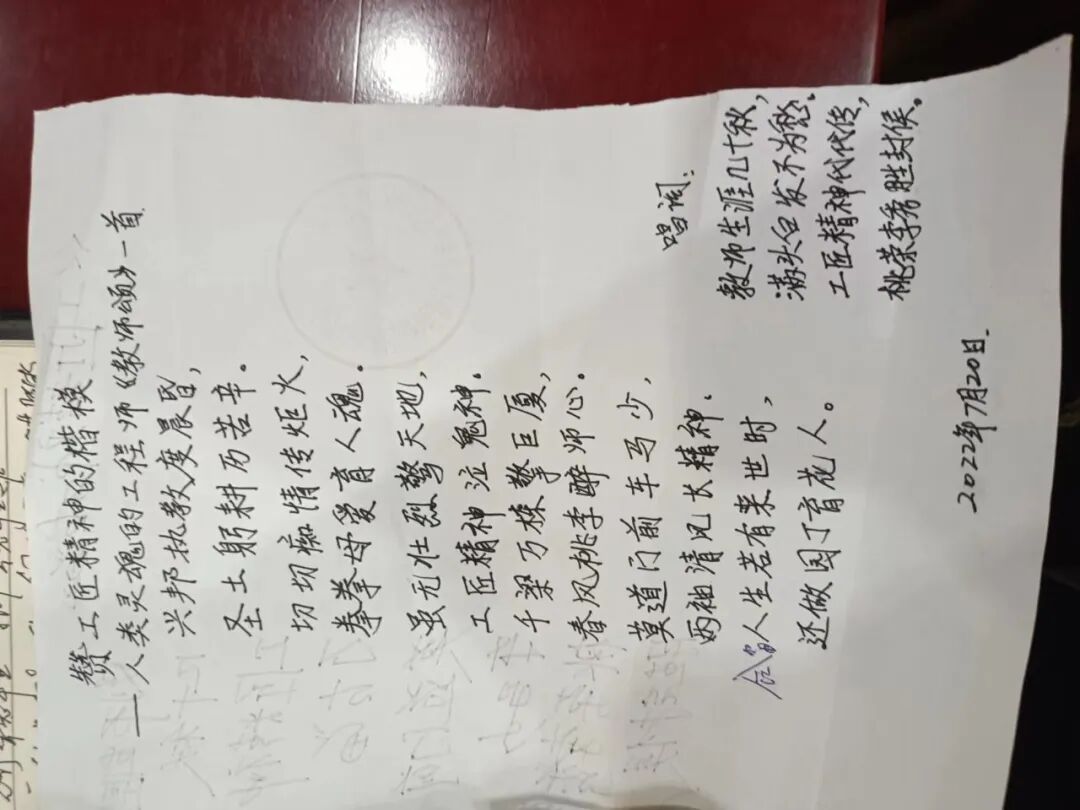 赞工匠精神的楷模
——人类灵魂的工程师《教师颂》一首
兴邦执教度晨昏，
圣土躬耕历苦辛。
切切痴情传炬火，
拳拳母爱育人魂。
虽无壮烈惊天地，
工匠精神泣鬼神。
千梁万栋擎巨厦，
春风桃李醉师心。
莫道门前车马少，
两袖清风长精神。
人生若有来世时，
还做园丁育花人。
唱词：
教师生涯几十秋，
满头白发不为愁。
工匠精神代代传，
桃荣李秀胜封侯。
2022年7月20日.